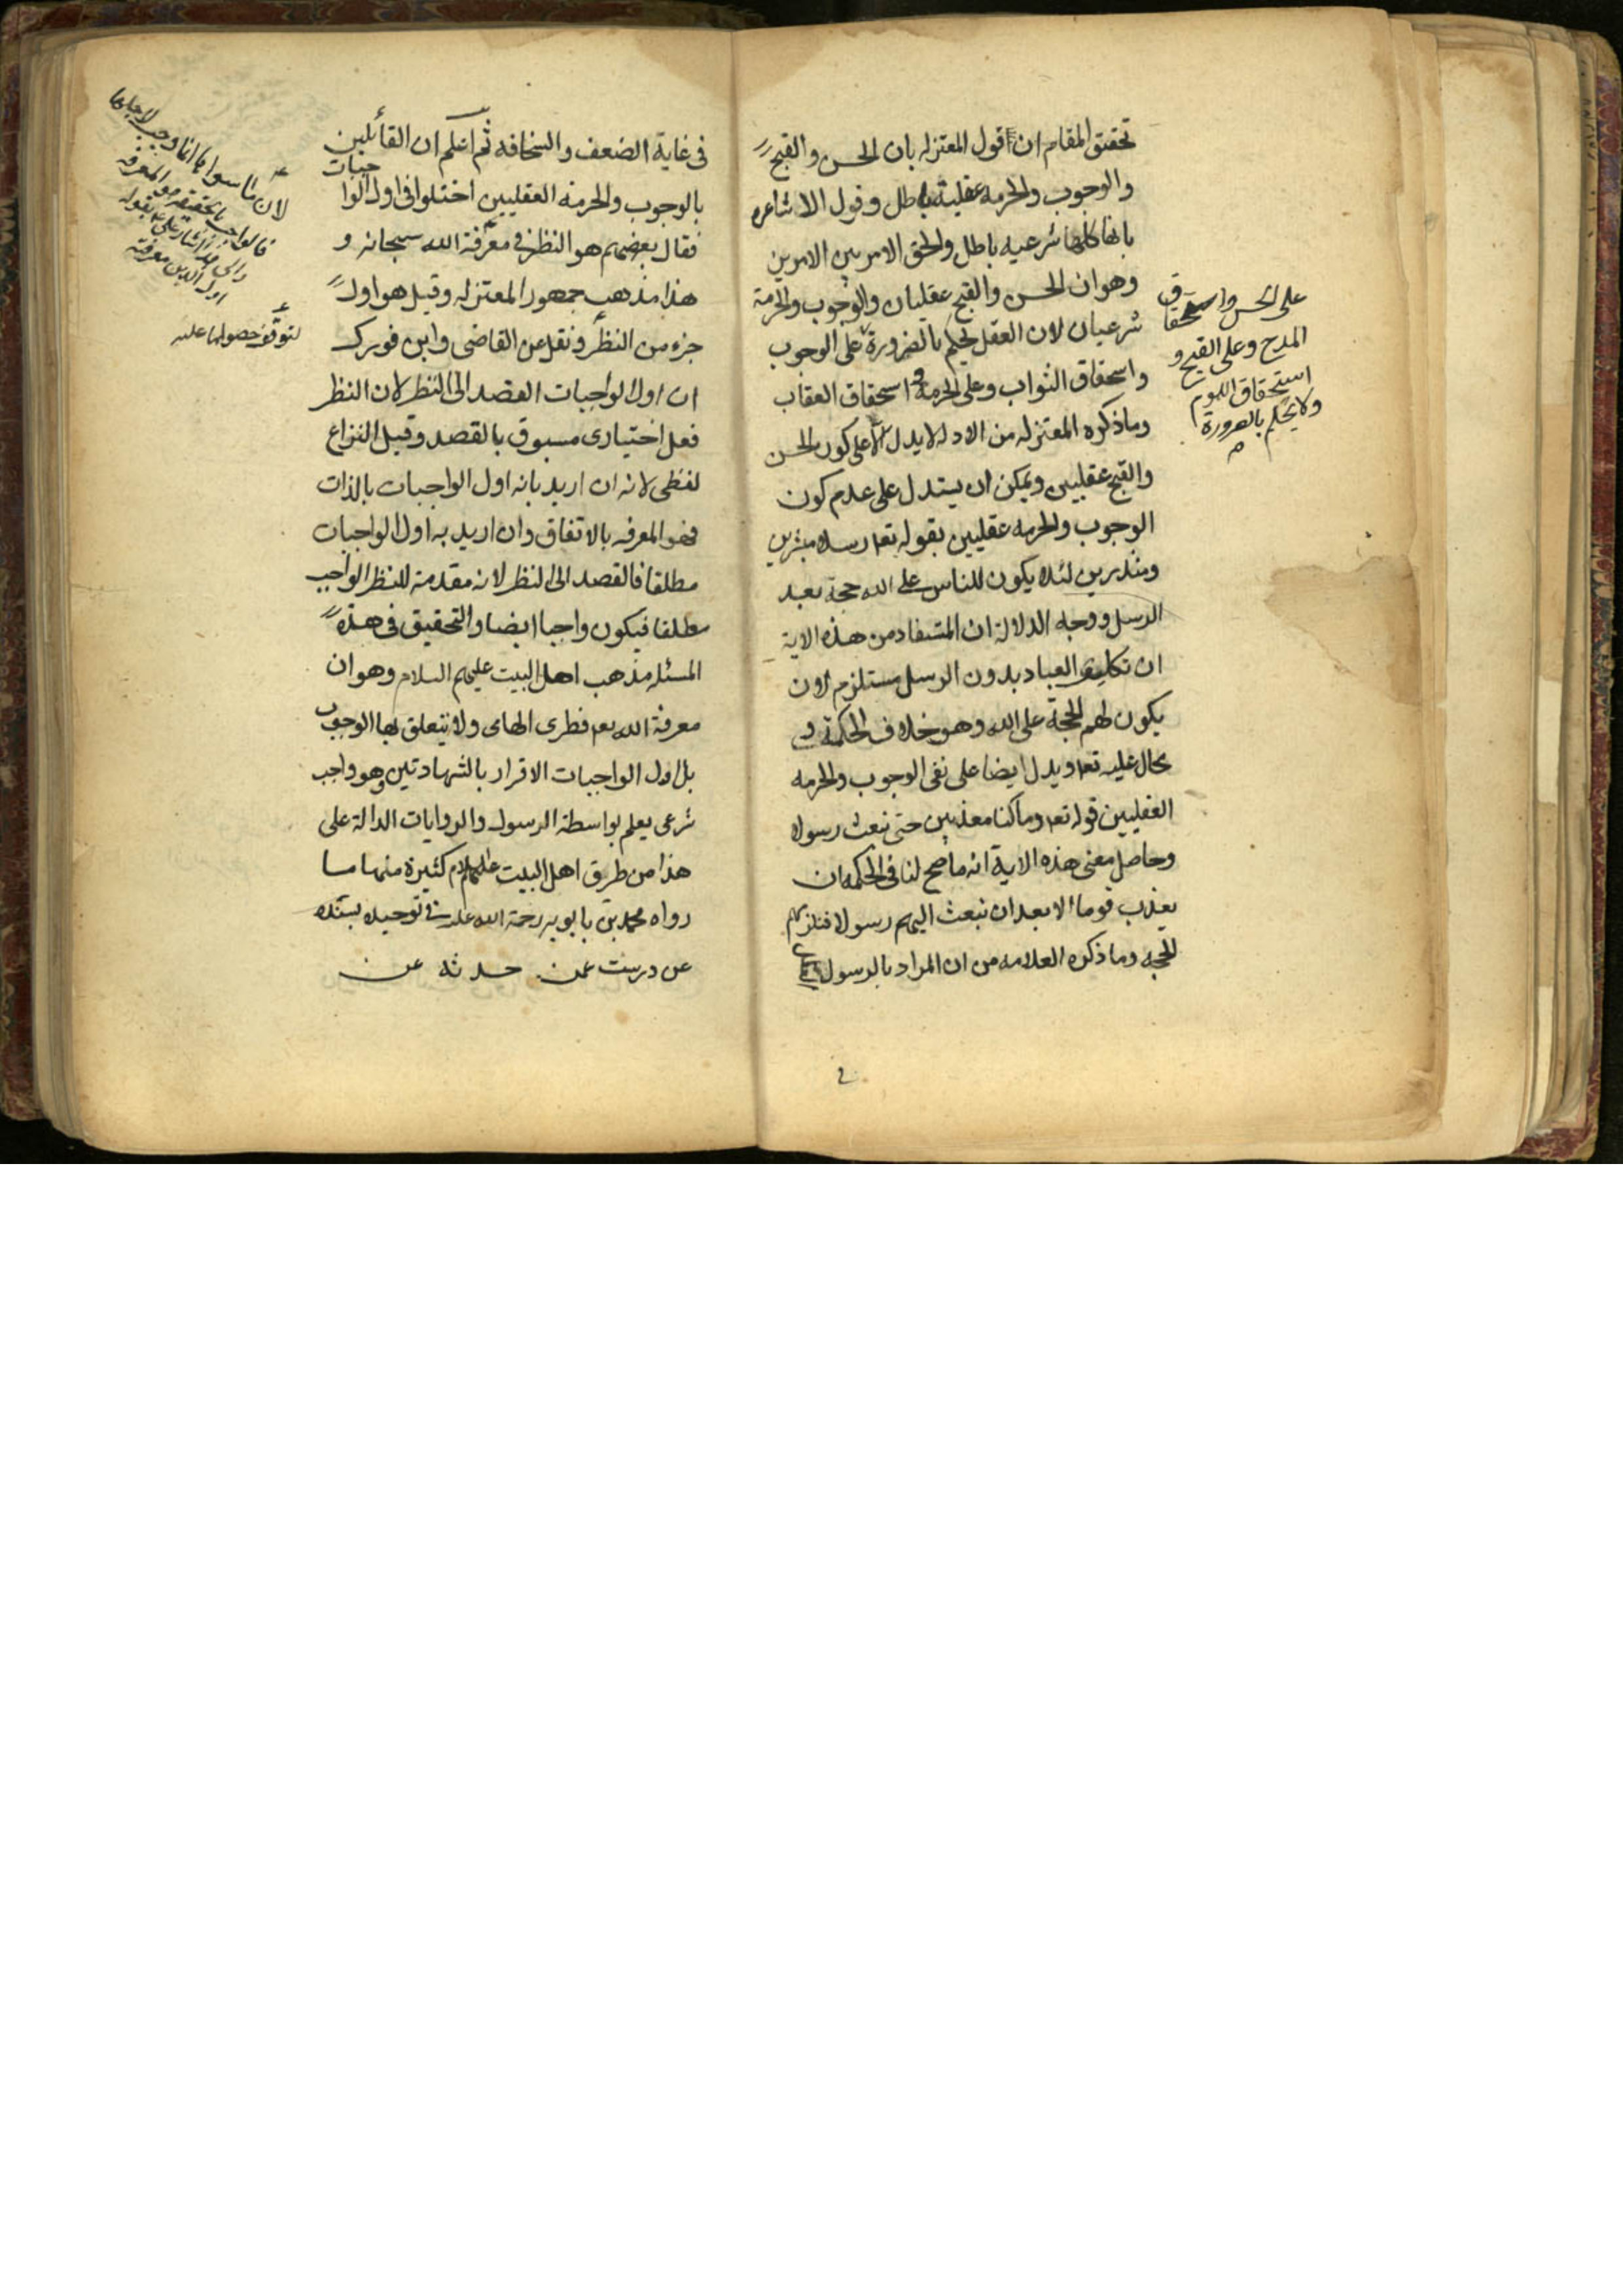 تحقيق المقام ان قول المعتزله بان الحسن والقبح
والوجوب والحرمه عقلية باطل وقول الاشاعره
بانها كلها شرعيه باطل والحق الامر بين الامرين
وهو ان الحسن والقبح عقليان والوجوب والحرمة
شرعيان لان العقل يحكم بالضرورة على الوجوب
واسحقاق الثواب وعلى الحرمة و اسحقاق العقاب
وما ذكره المعتزله من الادله لا يدل الا على كون الحسن
والقبح عقليين ويمكن ان يستدل على عدم كون
الوجوب والحرمه عقليين بقوله تعه رسلا مبشرين
ومنذرين لئلا يكون للناس على الله حجة بعد
الرسل ووجه الدلالة ان المستفاد من هذه الاية
ان تكليف العباد بدون الرسل مستلزم لان
يكون لهم الحجة على الله وهو خلاف الحكمة و
محال عليه تعه ويدل ايضا على نفى الوجوب والحرمه
العقليين قوله تعه وما كنا معذبين حتى نبعث رسولا
وحاصل معنى هذه الاية انه ما صح لنا فى الحكمه ان
يعذب قوما الا بعد ان نبعث اليهم رسولا فنلزمهم
الحجه وما ذكره العلامه من ان المراد بالرسول
على الحسن واستحقاق
المدح وعلى القبح و
استحقاق اللوم
ولا يحكم بالضرورة
فى غاية الضعف والسخافه ثم اعلم ان القائلين
بالوجوب والحرمة العقليين اختلوا فى اول الواجبات
فقال بعضهم هو النظر فى معرفة الله سبحانه و
هذا مذهب جمهور المعتزله وقيل هو اول
جزء من النظر ونقل عن القاضى وابن فورك
ان اول الواجبات القصد الى النظر لان النظر
فعل اختيارى مسبوق بالقصد وقيل النزاع
لفظى لانه ان اريد بانه اول الواجبات بالذات
فهو المعرفه بالاتفاق وان اريد به اول الواجبات
مطلقا فالقصد الى النظر لانه مقدمة للنظر الواجب
مطلقا فيكون واجبا ايضا والتحقيق فى هذه
المسئله مذهب اهل البيت عليهم السلام وهو ان
معرفة الله تعه فطرى الهاى ولا يتعلق بها الوجوب
بل اول الواجبات الاقرار بالشهادتين وهو واجب
شرعى يعلم بواسطة الرسول والروايات الدالة على
هذا من طرق اهل البيت عليهم السلام كثيرة منها ما
رواه محمد بن بابويه رحمة الله عليه فى توحيده بسنده
عن درست عمن حدثه عن
لان ما سواها انما وجب لاجلها
فالواجب بالحقيقة هو المعرفة
اول الدين معرفته
لتوقف حصولها عليه